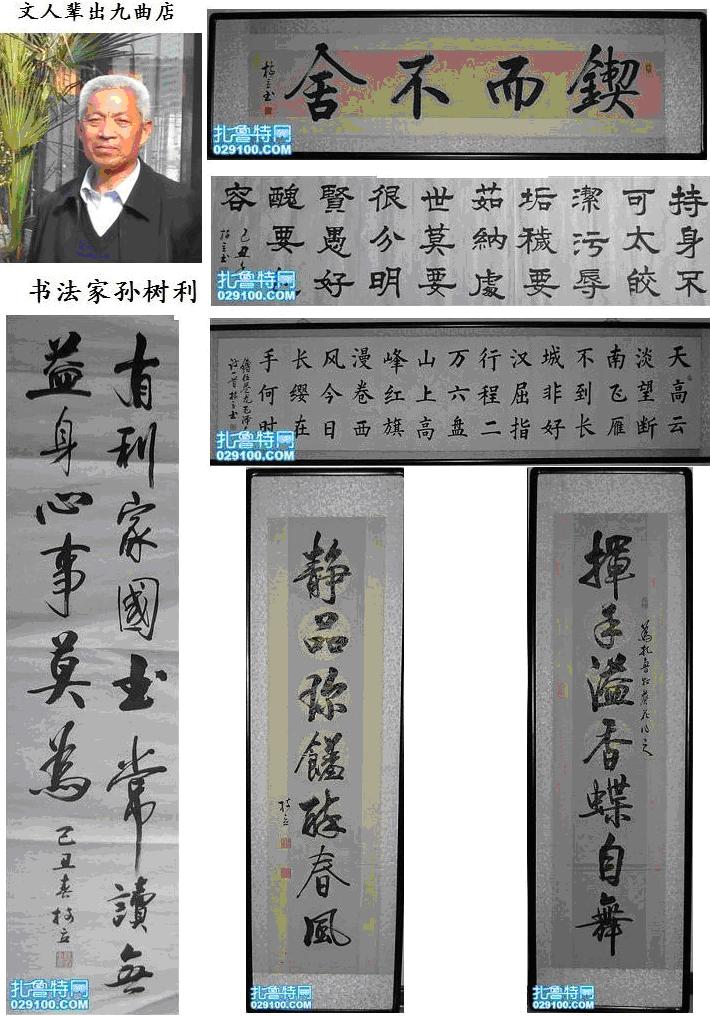 文人辈出九曲店
鍥而不舍
扎鲁特网
029100.COM
书法家孙树利
持身不
可太皎
潔污辱
垢穢要
茹納處
世莫要
很分明
賢愚好
醜要
容
己丑
扎鲁特网
029100.COM
天高云
淡望断
南飞雁
不到长
城非好
汉屈指
行程二
万六盘
山上高
峰红旗
漫卷西
风今日
长缨在
手何时
扎鲁特网
029100.COM
有利家國书常讀無
益身心事莫為
己丑春
扎鲁特网
029100.COM
揮手溢香蝶自舞
扎鲁特网
029100.COM
静品珍饈醉春風
扎鲁特网
029100.COM